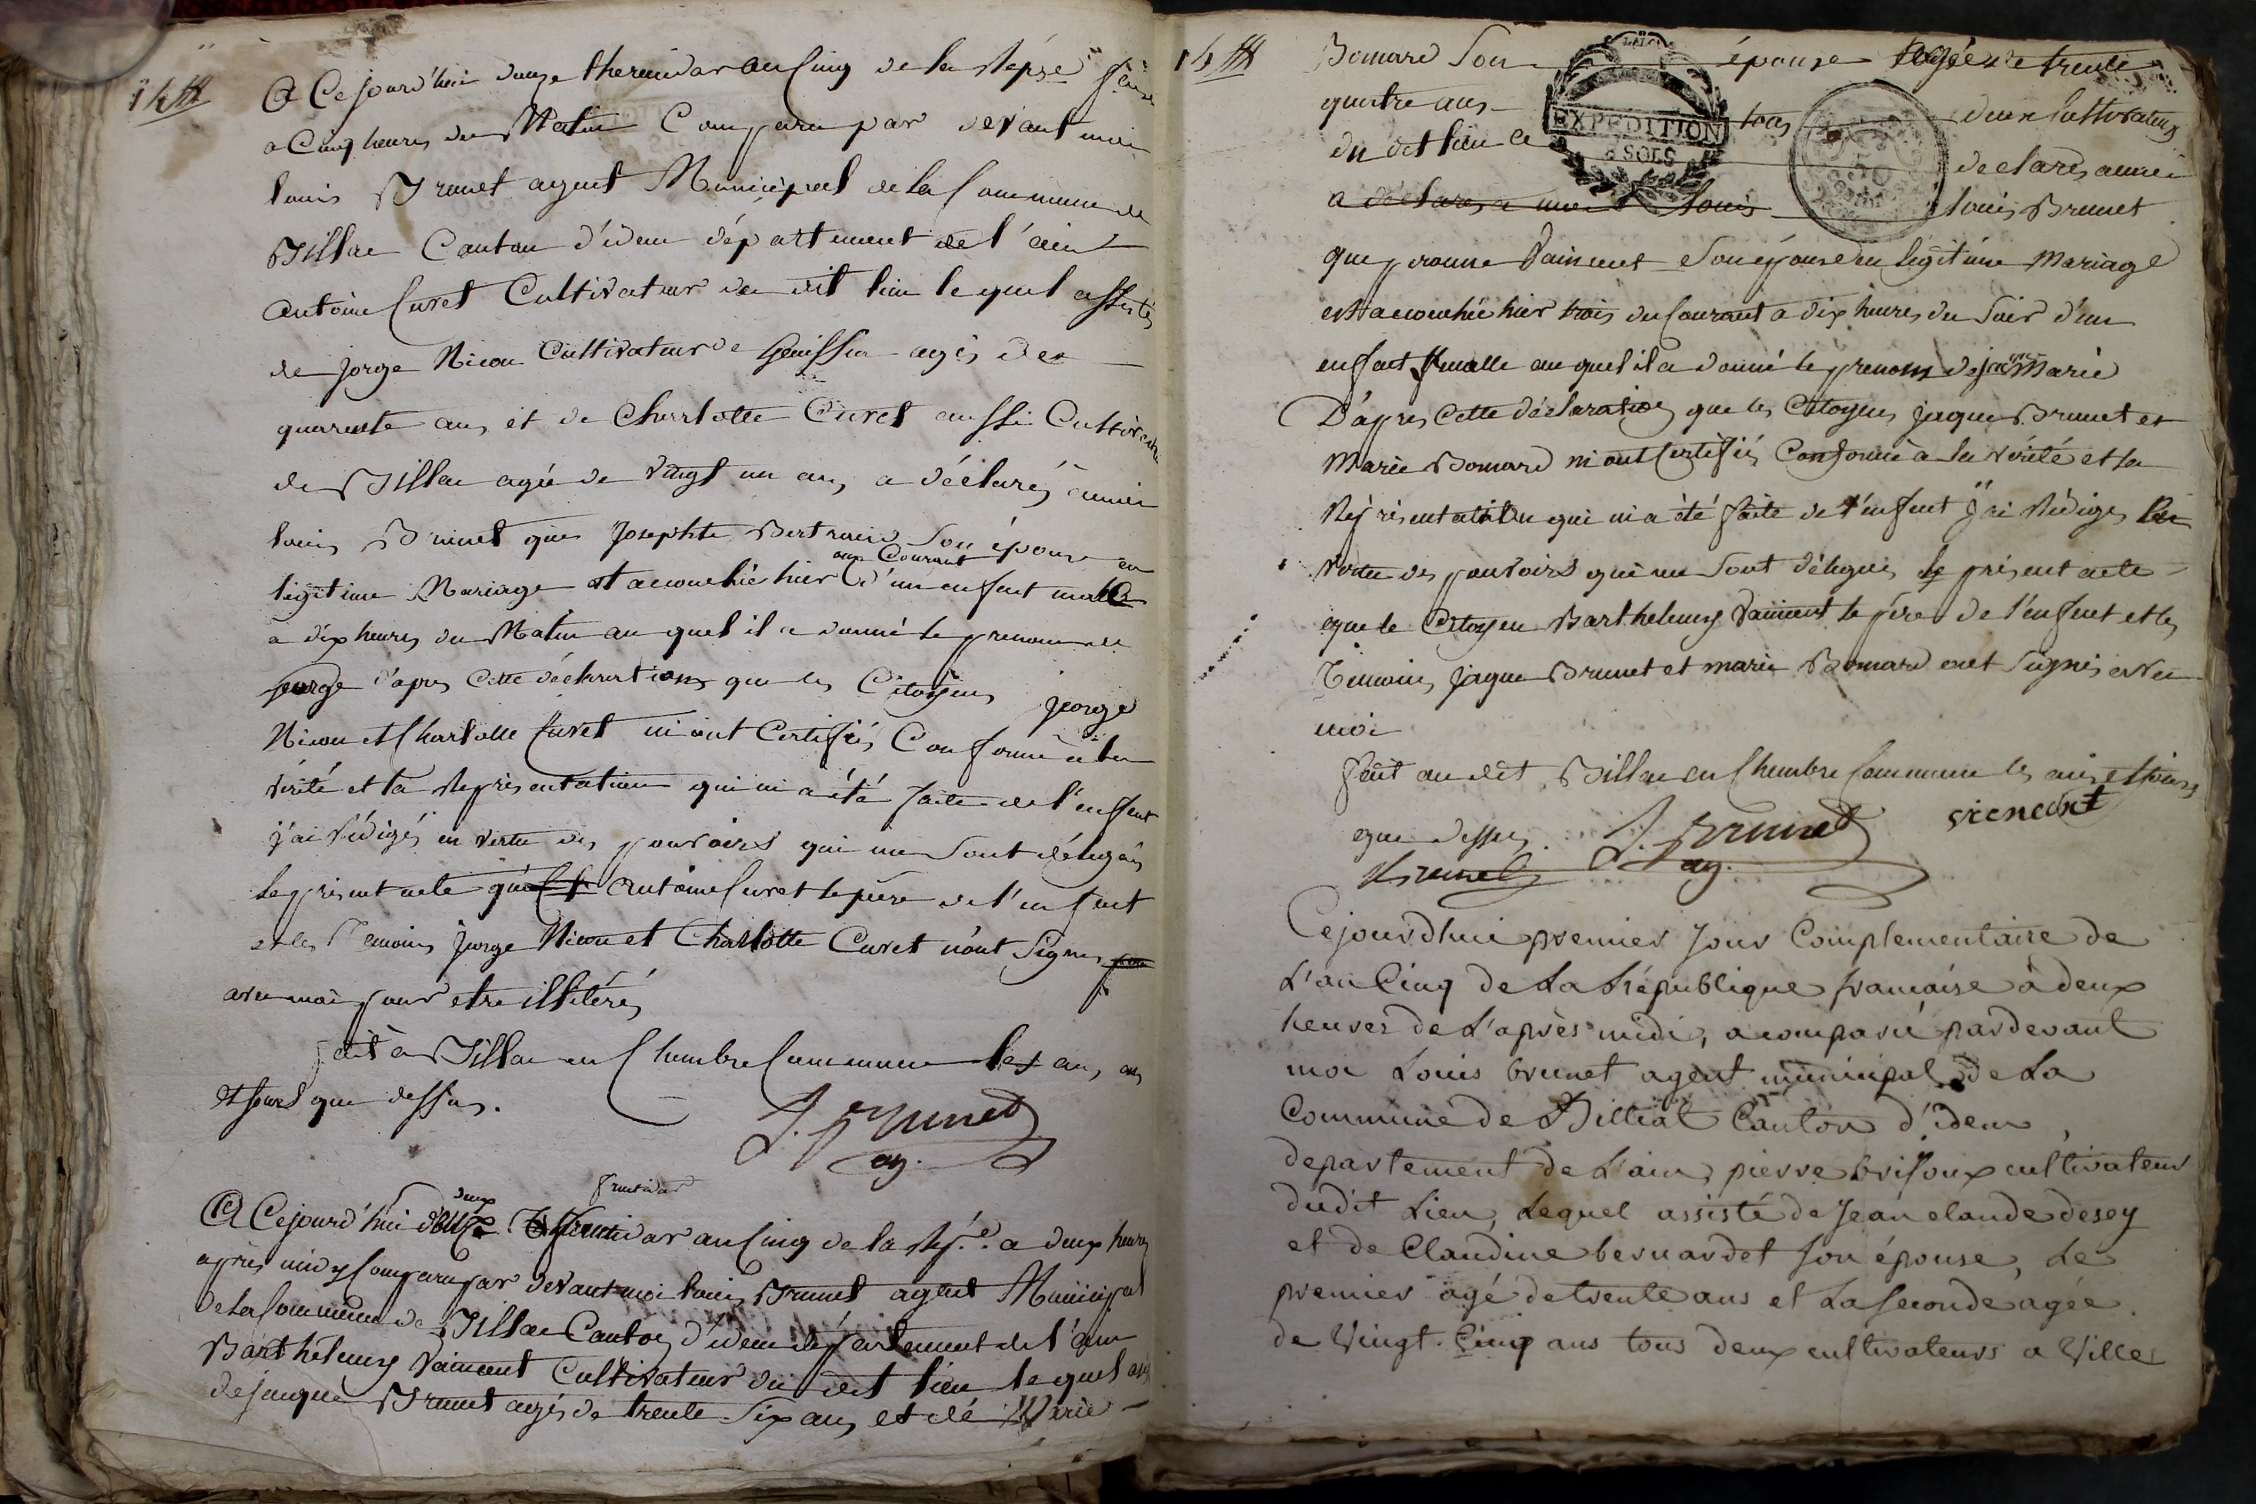 Ce jourd'hui douze thermidor an cinq de la Répse
a Cinq heures du Matin Comparu par devant moi
louis Brunet agent Municipal de la Commune de
Billac Canton d'idem département de l'ain
antoine Curet Cultivateur du dit lieu le quel assistés
de jorge Nicou Cultivateur de Genissia agés de
quarente ans et de Charlotte Curet aussi
de Billac agée de vingt un ans, a déclarés a moi
louis Brunet que Josephte Bertrand Son épouse en
legitime Mariage est accouchée hier onze Courant d'un enfant male
a dix heures du Matin au quel il a donné le prenom de
jeorge d'apres Cette déclaration que les Citoyens jeorge
Nicou et Charlotte Curet m'ont Certifiés Conforme a la
vérité et la Représentation qui m'a été faite de l'enffent
j'ai Rédigés en vertu des pouvoirs qui me sont délégués
le présent acte que antoine Curet le père de l'enfent
et les Temoins jorge Nicou et Charlotte Curet n'ont Signes
avec moi pour etre illitérés
fait a Billac en Chambre Commune les an,
et jours que dessus.
L. Brunet
ag.
Ce jourd'hui deux fructidor an Cinq de la Rép.e a deux heures
après midy Comparu par devant moi louis Brunet agent Municipal
de la Commune de Billac Canton d'idem département de l'ain
Barthelemy Vaincent Cultivateur du dit lieu le quel
de jauque Brunet agés de trente Six ans et de Marie
Bomard Son épouse agée de trente
quatre ans tous deux Cultivateurs
du dit lieu a déclarés a moi
EXPEDITION
SOLS
a déclarés a moi Louis louis Brunet
que Vaincent Son épouse en legitime Mariage
est accouchée hier trois du Courant a dix heures du Soir d'un
enfent femelle au quel il a donné le prenom de Marie
D'apres Cette déclaration que les Citoyens jaque Brunet et
Marie Bomard m'ont Certifiés Conforme à la vérité et la
Réprésentation qui m'a été faite de l'enfent j'ai Rédiges
vertu des pouvoirs qui me sont délégués le présent acte
que le Citoyen Barthelemy Vaincent le père de l'enfent et les
Témoins jaque Brunet et marie Bomard ont Signés avec
moi
fait au dit Billac en Chambre Commune les an et jours
que dessus.
L. Brunet
ag.
Brunet
Ce jourdhui premier jour Complementaire de
L'an Cinq de La République francaise à deux
heures de L'après midi, a comparu pardevant
moi Louis brunet agent municipal de La
Commune de Billiat Canton d'idem,
departement de L'ain, pierre brifoux cultivateur
dudit Lieu, Lequel assisté de Jean claude desey
et de Claudine bernardet son épouse, Le
premier agé de trente ans et La Seconde agée
de Vingt-Cinq ans tous deux cultivateurs a Villes